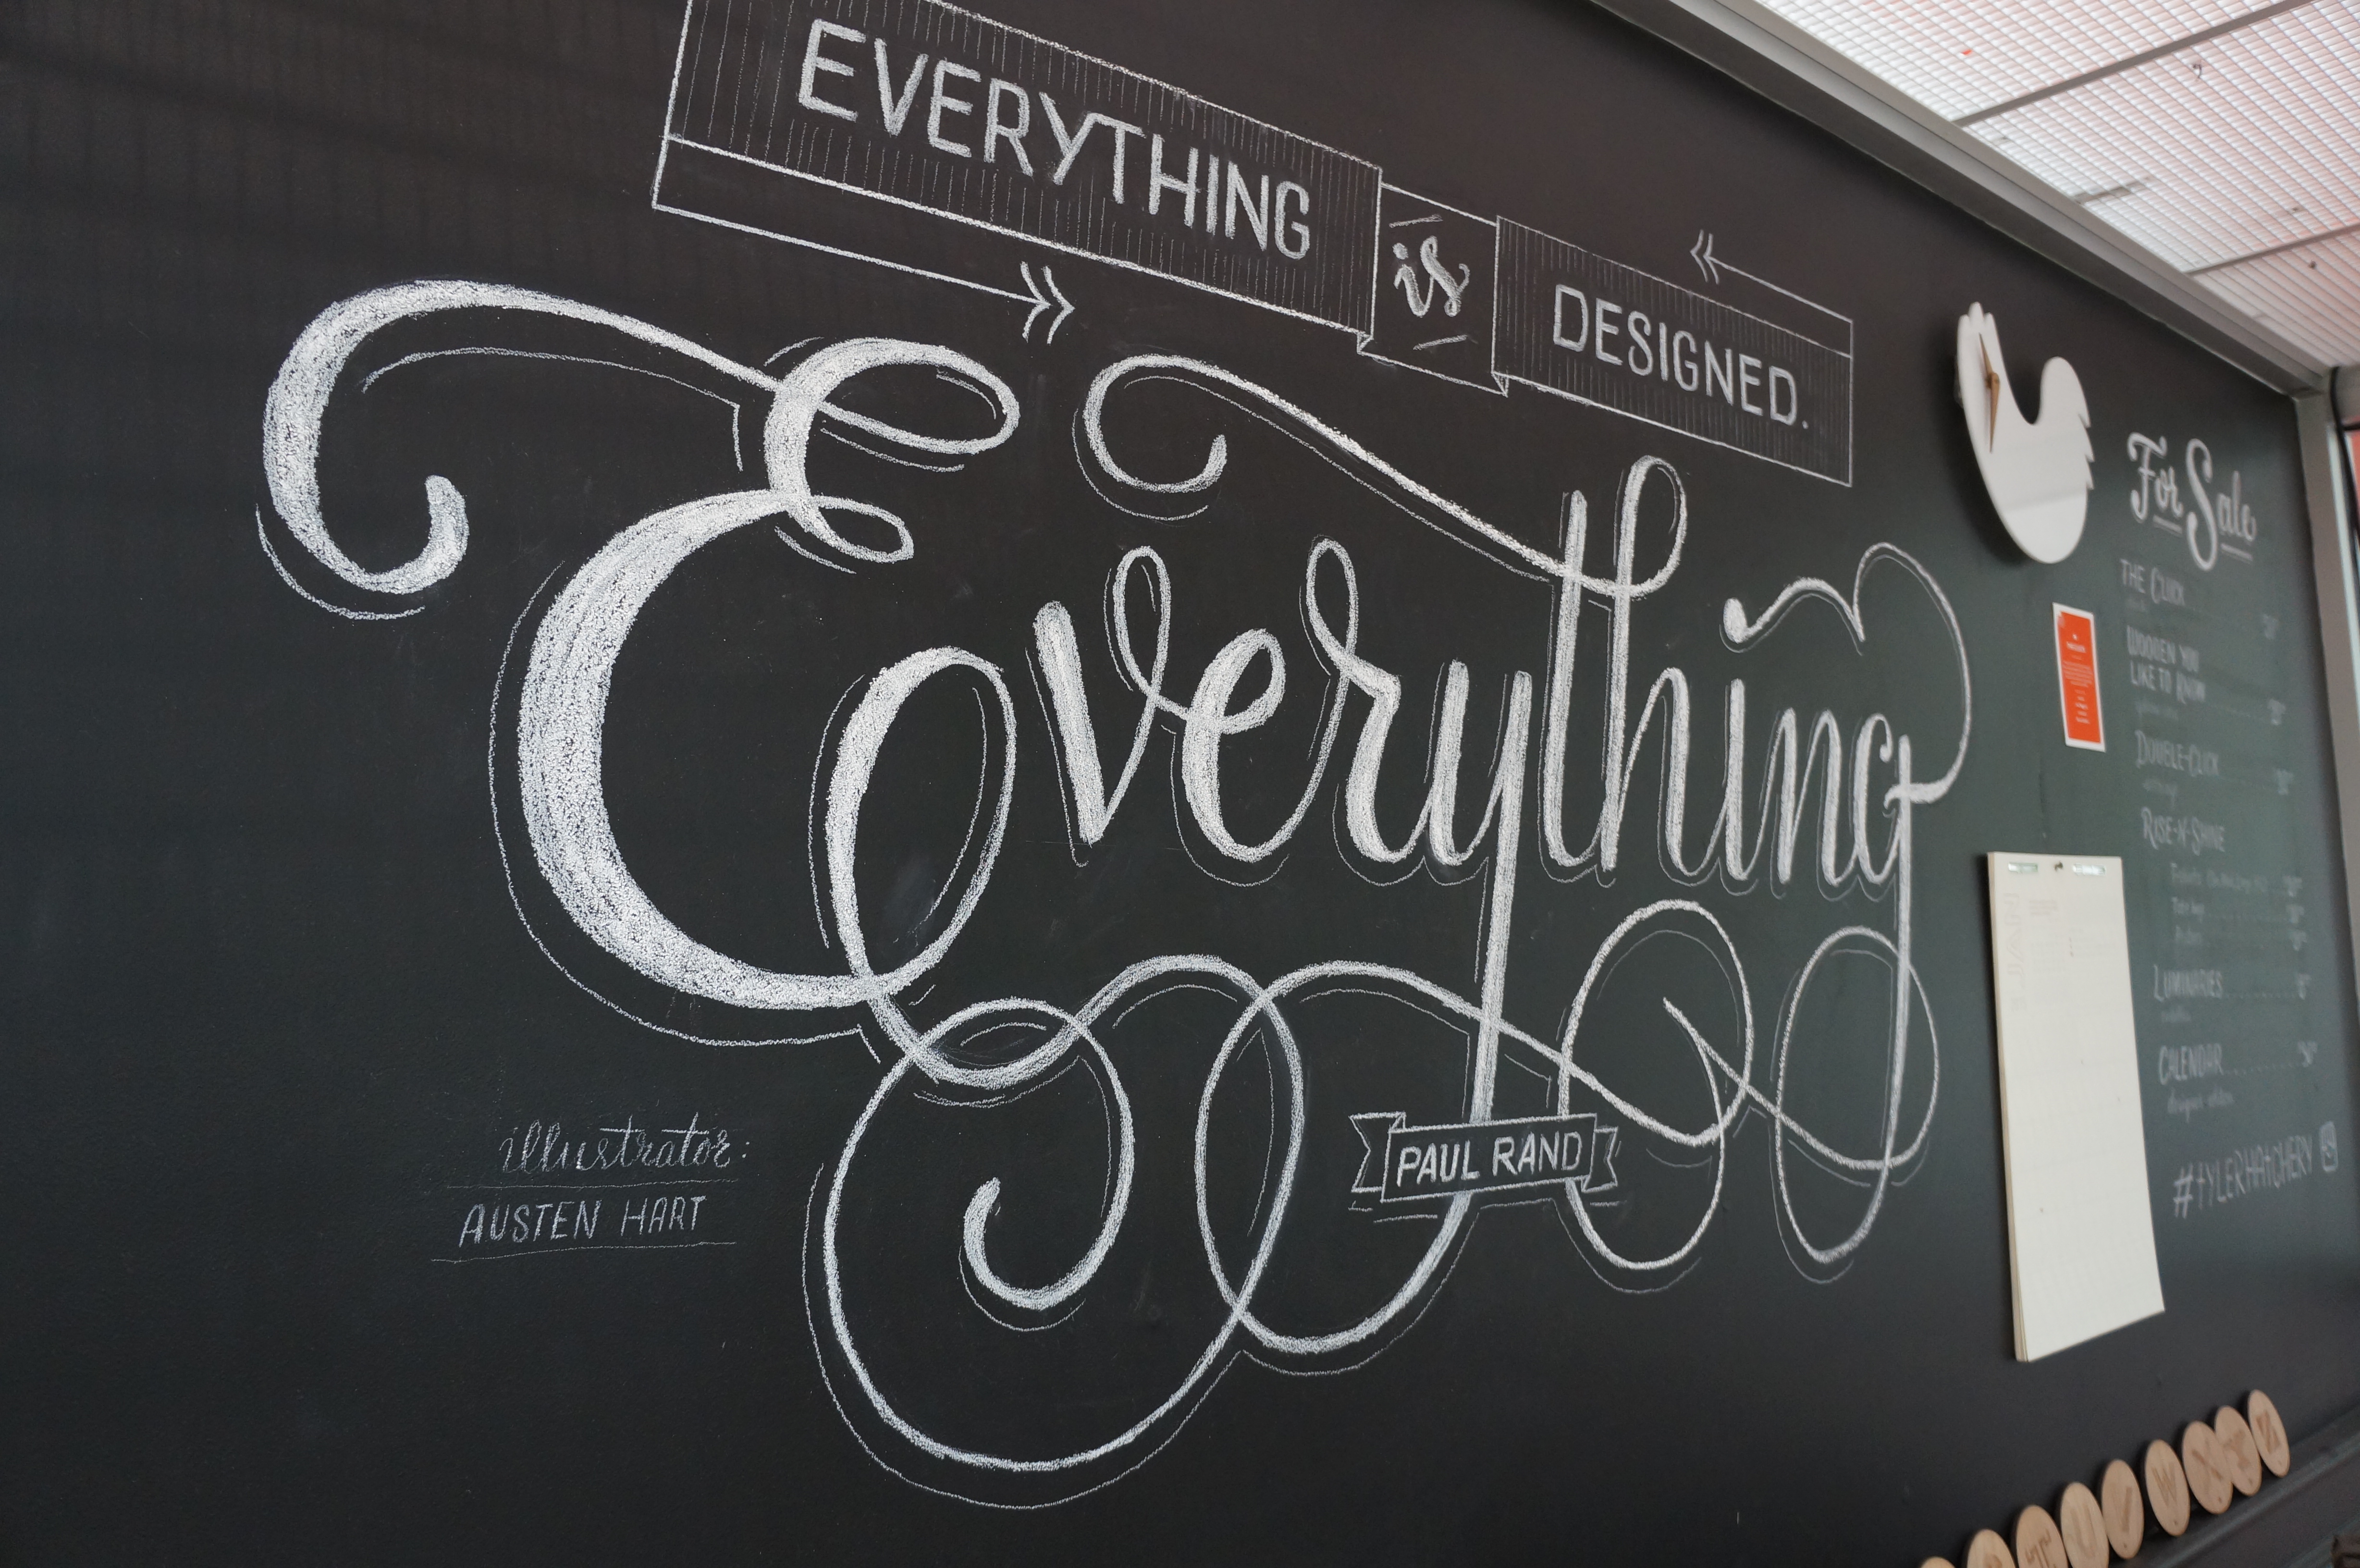 EVERYTHING
is
DESIGNED.
Everything
PAUL RAND
illustrator:
AUSTEN HART
For Sale
THE CLUCK
WOODEN YOU
LIKE TO KNOW
DOUBLE-CLICK
RISE-N-SHINE
LUMINARIES
CALENDAR
#TYLERHATCHERY
T
U
V
W
X
Y
Z